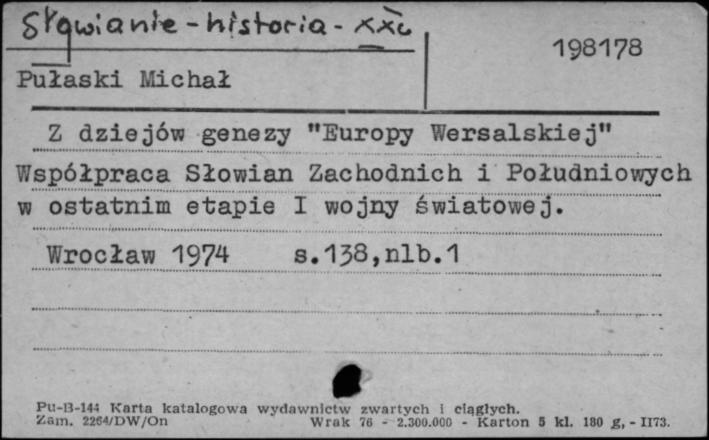 Słowianie - historia - XXw
198178
Pułaski Michał
Z dziejów genezy "Europy Wersalskiej"
Współpraca Słowian Zachodnich i Południowych
w ostatnim etapie I wojny światowej.
Wrocław 1974 s.138,nlb.1
Pu-B-144 Karta katalogowa wydawnictw zwartych i ciągłych.
Zam. 2264/DW/On Wrak 76 - 2.300.000 - Karton 5 kl. 180 g, - II73.